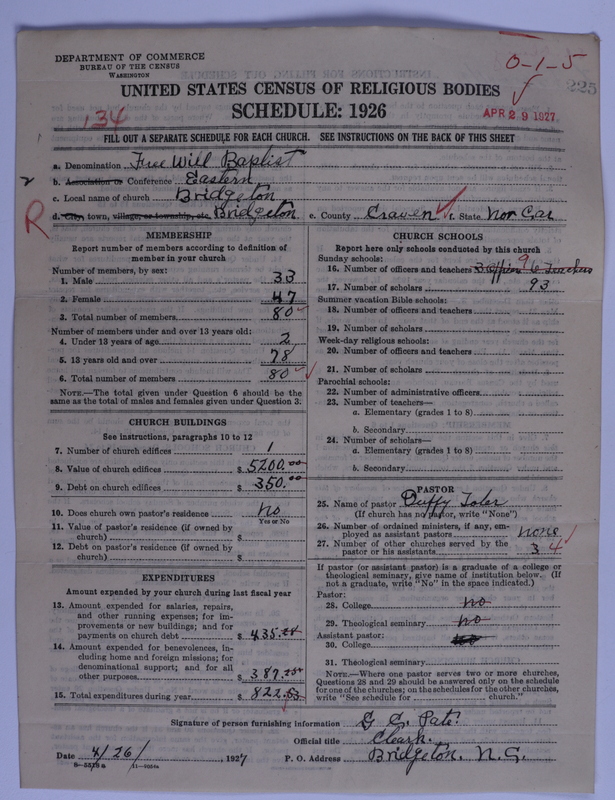 DEPARTMENT OF COMMERCE
BUREAU OF THE CENSUS
WASHINGTON
0-1-5
225
UNITED STATES CENSUS OF RELIGIOUS BODIES
134
SCHEDULE: 1926
APR 29 1927
FILL OUT A SEPARATE SCHEDULE FOR EACH CHURCH. SEE INSTRUCTIONS ON THE BACK OF THIS SHEET
a. Denomination Free Will Baptist
2 b. Association or Conference Eastern
c. Local name of church Bridgeton
R d. City, town, village, or township, etc. Bridgeton e. County Craven f. State Nor Car
MEMBERSHIP
Report number of members according to definition of
member in your church
Number of members, by sex:
1. Male 33
2. Female 47
3. Total number of members 80
Number of members under and over 13 years old:
4. Under 13 years of age 2
5. 13 years old and over 78
6. Total number of members 80
NOTE.—The total given under Question 6 should be
the same as the total of males and females given under Question 3.
CHURCH BUILDINGS
See instructions, paragraphs 10 to 12
7. Number of church edifices 1
8. Value of church edifices $ 5200.00
9. Debt on church edifices $ 350.00
10. Does church own pastor's residence? No
Yes or No
11. Value of pastor's residence (if owned by
church) $
12. Debt on pastor's residence (if owned by
church) $
EXPENDITURES
Amount expended by your church during last fiscal year
13. Amount expended for salaries, repairs,
and other running expenses; for im-
provements or new buildings; and for
payments on church debt $ 435.
14. Amount expended for benevolences, in-
cluding home and foreign missions; for
denominational support; and for all
other purposes $ 387.
15. Total expenditures during year $ 822.53
CHURCH SCHOOLS
Report here only schools conducted by this church
Sunday schools:
16. Number of officers and teachers 3 officers 9 6 Teachers
17. Number of scholars 93
Summer vacation Bible schools:
18. Number of officers and teachers
19. Number of scholars
Week-day religious schools:
20. Number of officers and teachers
21. Number of scholars
Parochial schools:
22. Number of administrative officers
23. Number of teachers—
a. Elementary (grades 1 to 8)
b. Secondary
24. Number of scholars—
a. Elementary (grades 1 to 8)
b. Secondary
PASTOR
25. Name of pastor Duffy Toler
(If church has no pastor, write "None")
26. Number of ordained ministers, if any, em-
ployed as assistant pastors none
27. Number of other churches served by the
pastor or his assistants 3 4
If pastor (or assistant pastor) is a graduate of a college or
theological seminary, give name of institution below. (If
not a graduate, write "No" in the space indicated.)
Pastor:
28. College no
29. Theological seminary no
Assistant pastor:
30. College
31. Theological seminary
NOTE.—Where one pastor serves two or more churches,
Questions 28 and 29 should be answered only on the schedule
for one of the churches; on the schedules for the other churches,
write "See schedule for church."
Signature of person furnishing information G C. Pate
Official title Clerk.
Date 4/26/ , 1927 P. O. Address Bridgeton, N.C.